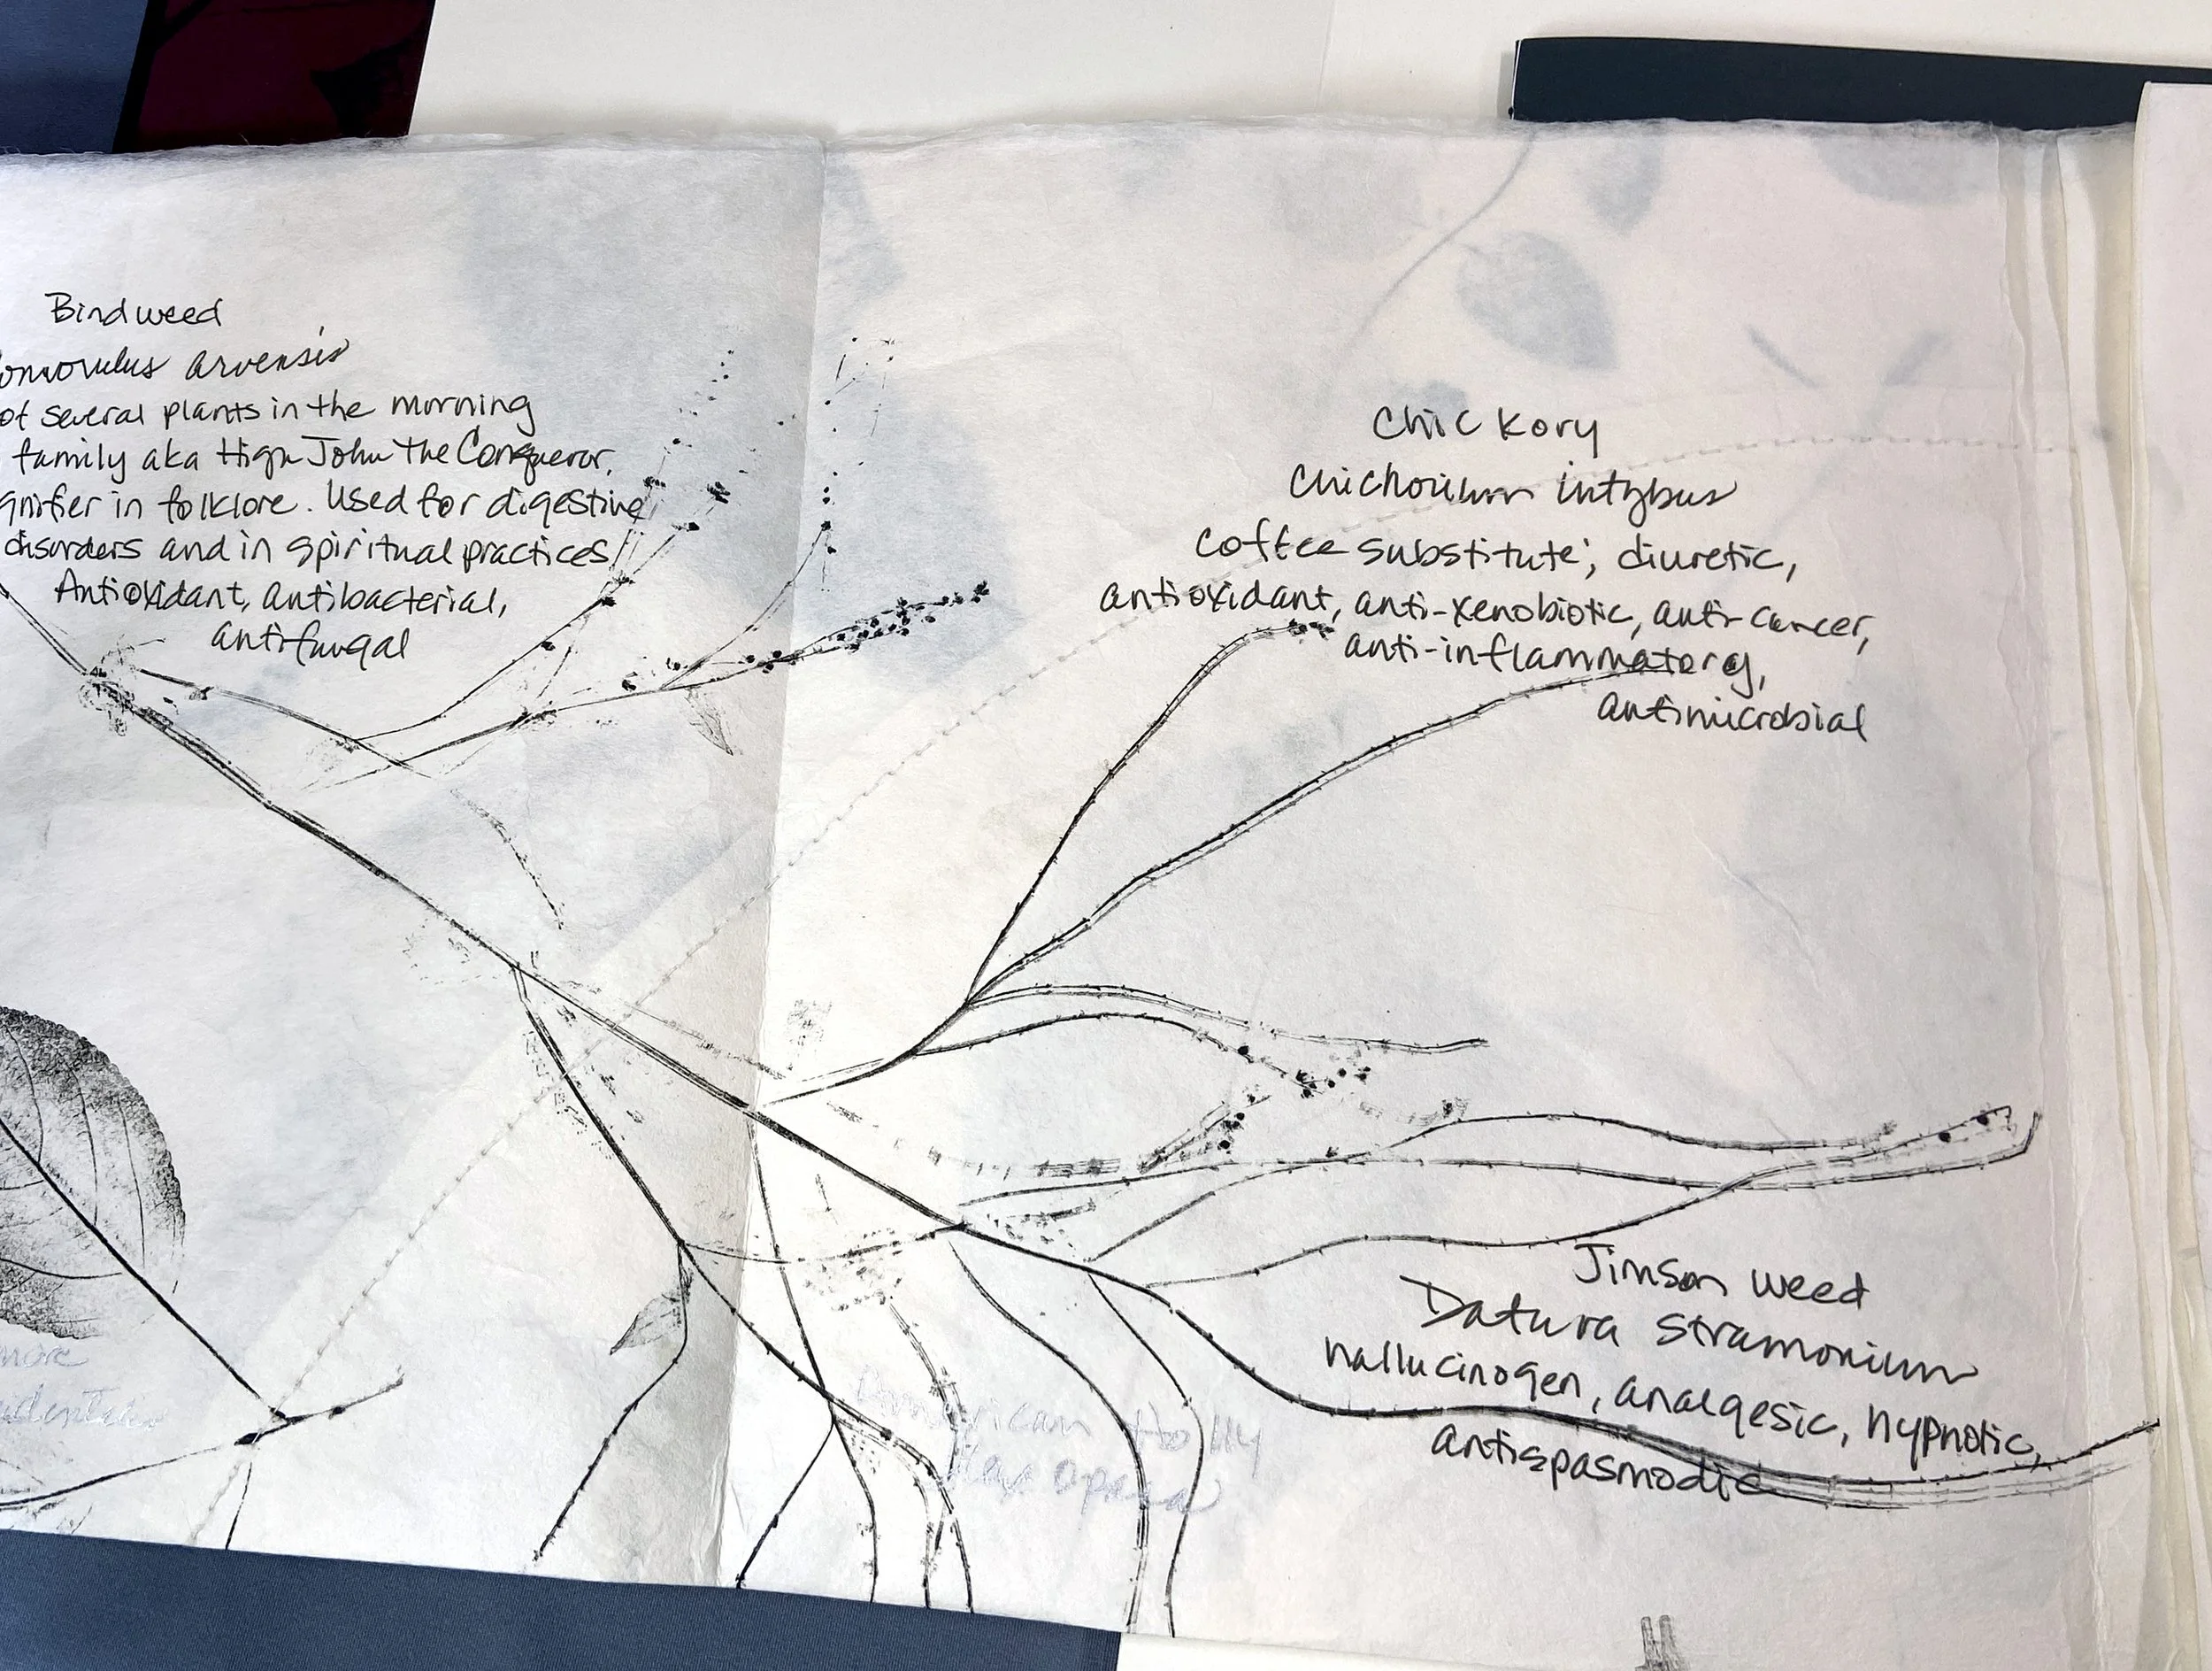 Bindweed
onvovulus arvensis
of several plants in the morning
family aka High John the Conqueror.
gnifier in folklore. Used for digestive
disorders and in spiritual practices
Antioxidant, antibacterial,
antifungal
Chickory
Chichorium intybus
coffee substitute; diuretic,
antioxidant, anti-xenobiotic, anti-cancer,
anti-inflammatory,
antimicrobial
Jimson weed
Datura stramonium
hallucinogen, analgesic, hypnotic,
antispasmodic
more
identalis
American Holly
Ilex opaca